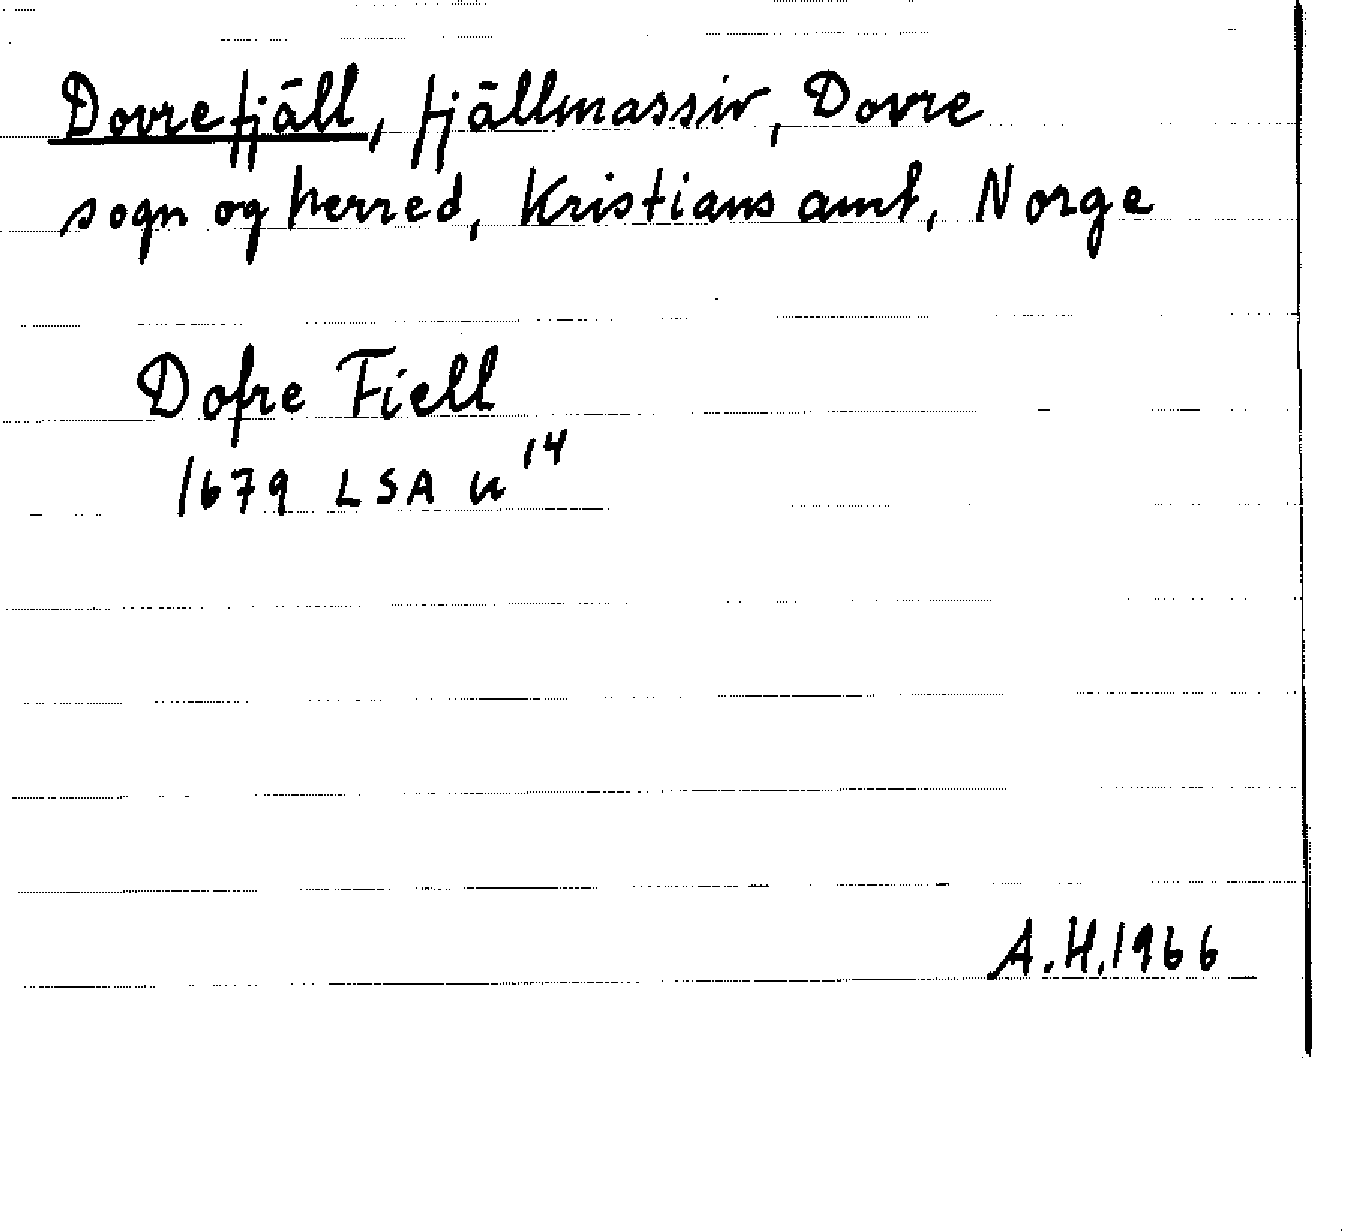 Dovrefjäll, fjällmassiv, Dovre
sogn og herred, Kristians amt, Norge
Dofre Fiell
1679 LSA U 14
A.H. 1966